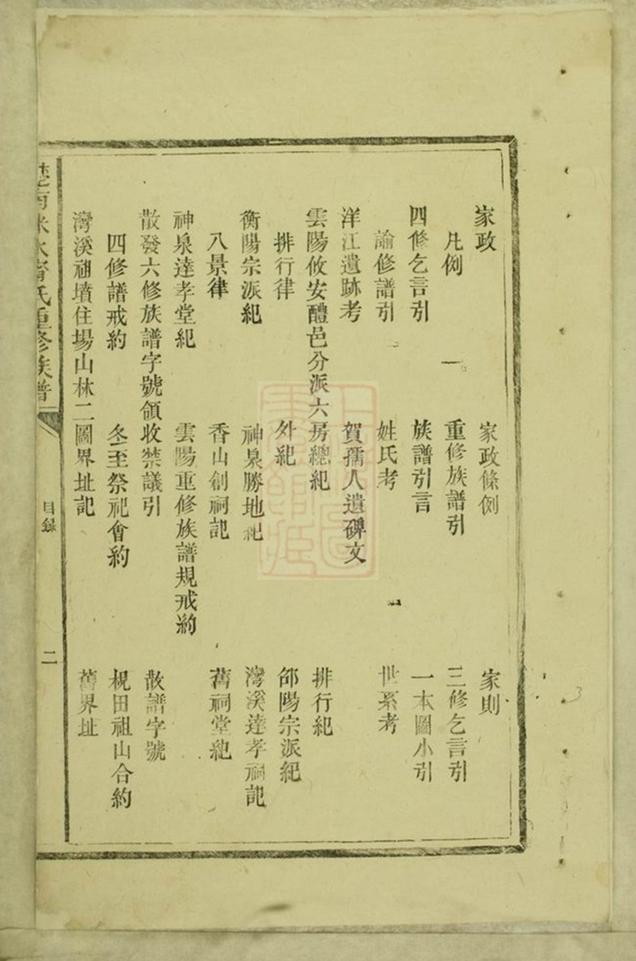 家政 家政條例 家則
凡例 重修族譜引 三修乞言引
四修乞言引 族譜引言 一本圖小引
諭修譜引 姓氏考 世系考
洋江遺跡考 賀孺人遺碑文
雲陽攸安醴邑分派六房總紀 排行紀
排行律 外紀 邵陽宗派紀
衡陽宗派紀 神泉勝地紀 灣溪達孝祠記
八景律 香山創祠記 舊祠堂紀
神泉達孝堂紀 雲陽重修族譜規戒約
散發六修族譜字號領收禁議引 散譜字號
四修譜戒約 冬至祭祀會約 梘田祖山合約
灣溪祖墳住場山林二圖界址記 舊界址
氏重修族譜 目錄 二